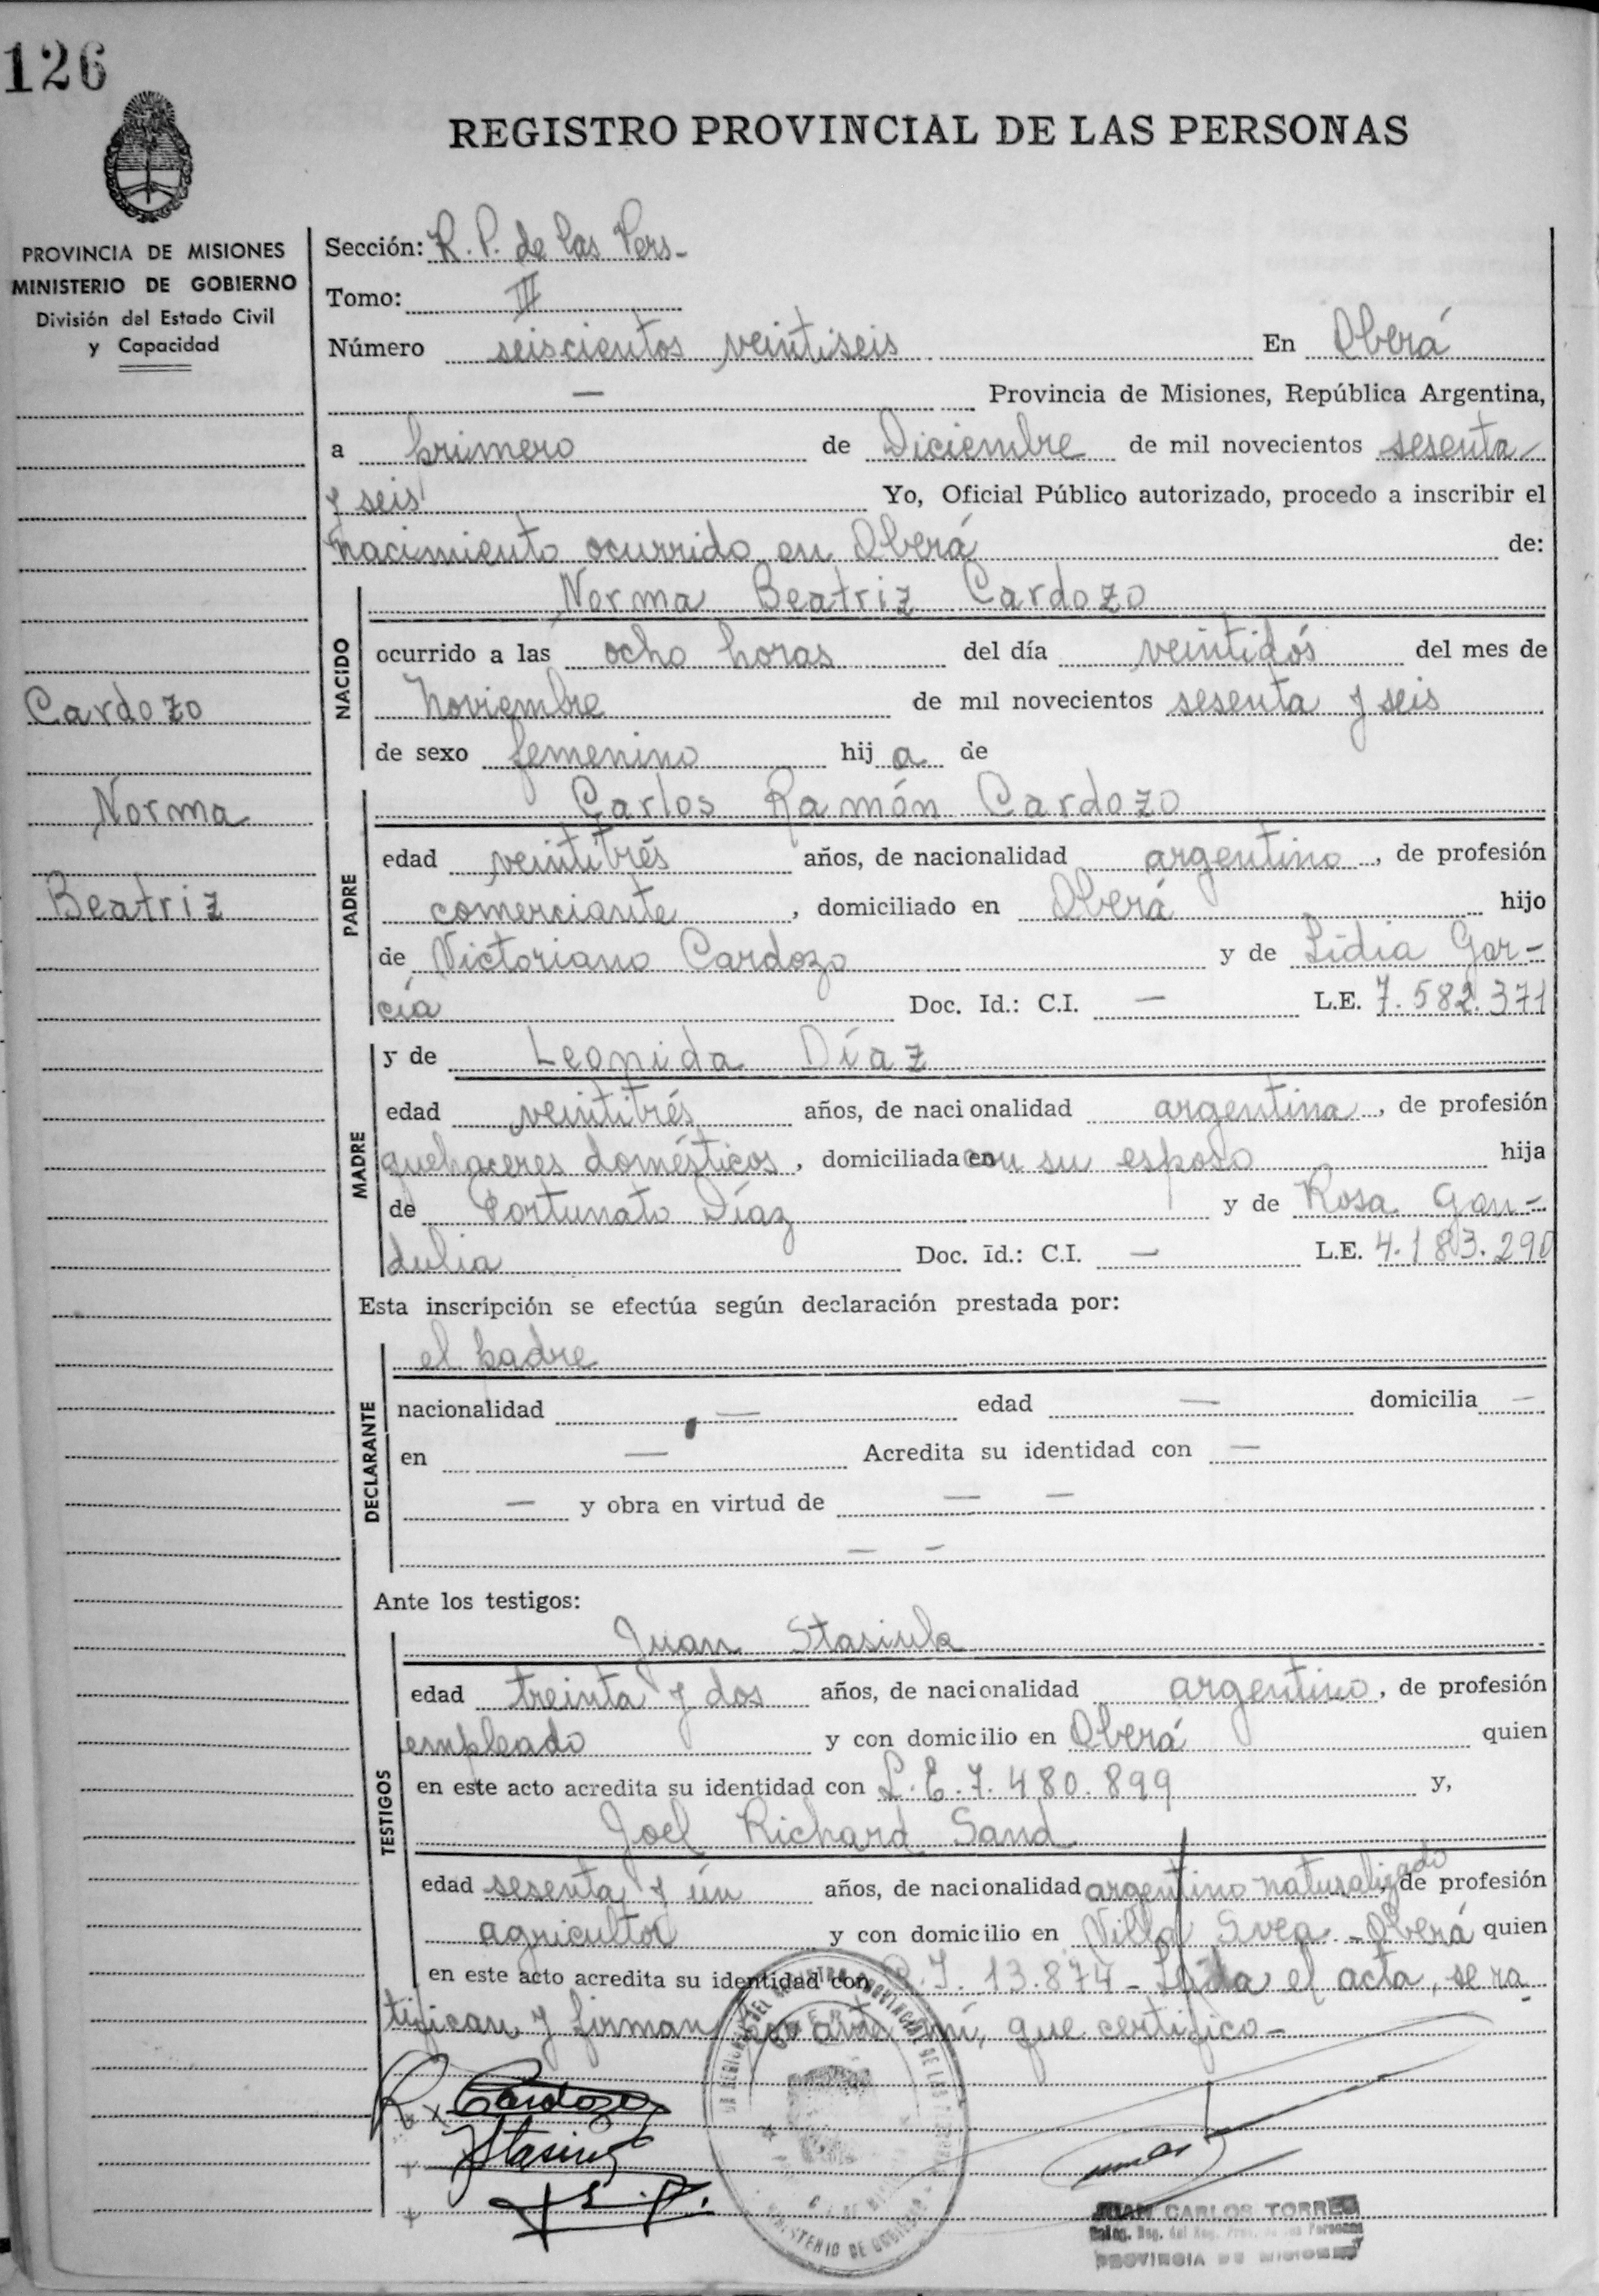 126
REGISTRO PROVINCIAL DE LAS PERSONAS
PROVINCIA DE MISIONES
MINISTERIO DE GOBIERNO
División del Estado Civil
y Capacidad
Cardozo
Norma
Beatriz
Sección: R. P. de las Pers-
Tomo: III
Número seiscientos veintiseis En Oberá
— Provincia de Misiones, República Argentina,
a primero de Diciembre de mil novecientos sesenta
y seis Yo, Oficial Público autorizado, procedo a inscribir el
nacimiento ocurrido en Oberá de:
NACIDO
Norma Beatriz Cardozo
ocurrido a las ocho horas del día veintidós del mes de
Noviembre de mil novecientos sesenta y seis
de sexo femenino hij a de
PADRE
Carlos Ramón Cardozo
edad veintitrés años, de nacionalidad argentino, de profesión
comerciante, domiciliado en Oberá hijo
de Victoriano Cardozo y de Lidia Gar-
cía Doc. Id.: C.I. — L.E. 7.582.371
MADRE
y de Leonida Díaz
edad veintitrés años, de nacionalidad argentina, de profesión
quehaceres domésticos, domiciliada con su esposo hija
de Fortunato Díaz y de Rosa Gan-
dulia Doc. Id.: C.I. — L.E. 4.183.290
Esta inscripción se efectúa según declaración prestada por:
DECLARANTE
el padre
nacionalidad — edad — domicilia —
en — Acredita su identidad con —
— y obra en virtud de — —
— —
Ante los testigos:
TESTIGOS
Juan Stasiuk
edad treinta y dos años, de nacionalidad argentino, de profesión
empleado y con domicilio en Oberá quien
en este acto acredita su identidad con L.E. 7.480.899 y,
Joel Richard Sand
edad sesenta y ún años, de nacionalidad argentino naturalizado, de profesión
agricultor y con domicilio en Villa Svea - Oberá quien
en este acto acredita su identidad con 13.874 - Leída el acta, se ra-
tifican y firman por ante mí, que certifico -
R. Cardozo
JUAN CARLOS TORRES
PROVINCIA DE MISIONES
MINISTERIO DE GOBIERNO